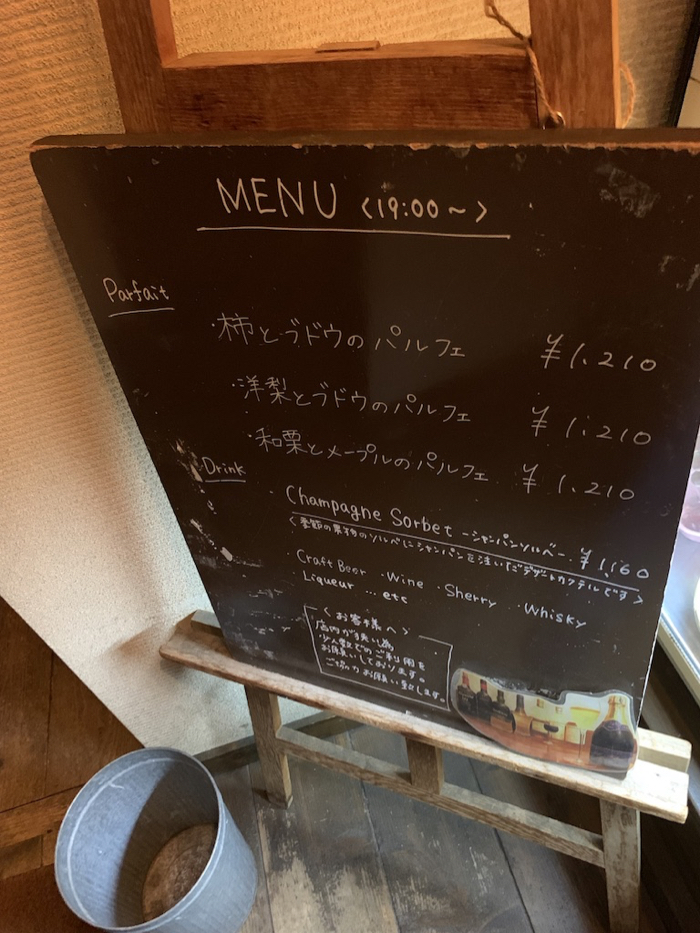 MENU <19:00~>
Parfait
・柿とブドウのパルフェ ¥1,210
・洋梨とブドウのパルフェ ¥1,210
・和栗とメープルのパルフェ ¥1,210
Drink
Champagne Sorbet -シャンパンソルベ- ¥1,160
<季節の果物のソルベにシャンパンを注いだデザートカクテルです>
Craft Beer ・Wine ・Sherry ・Whisky
Liqueur … etc
<お客様へ>
店内が狭い為
少人数でのご利用を
お願いしております。
ご協力お願い致します。